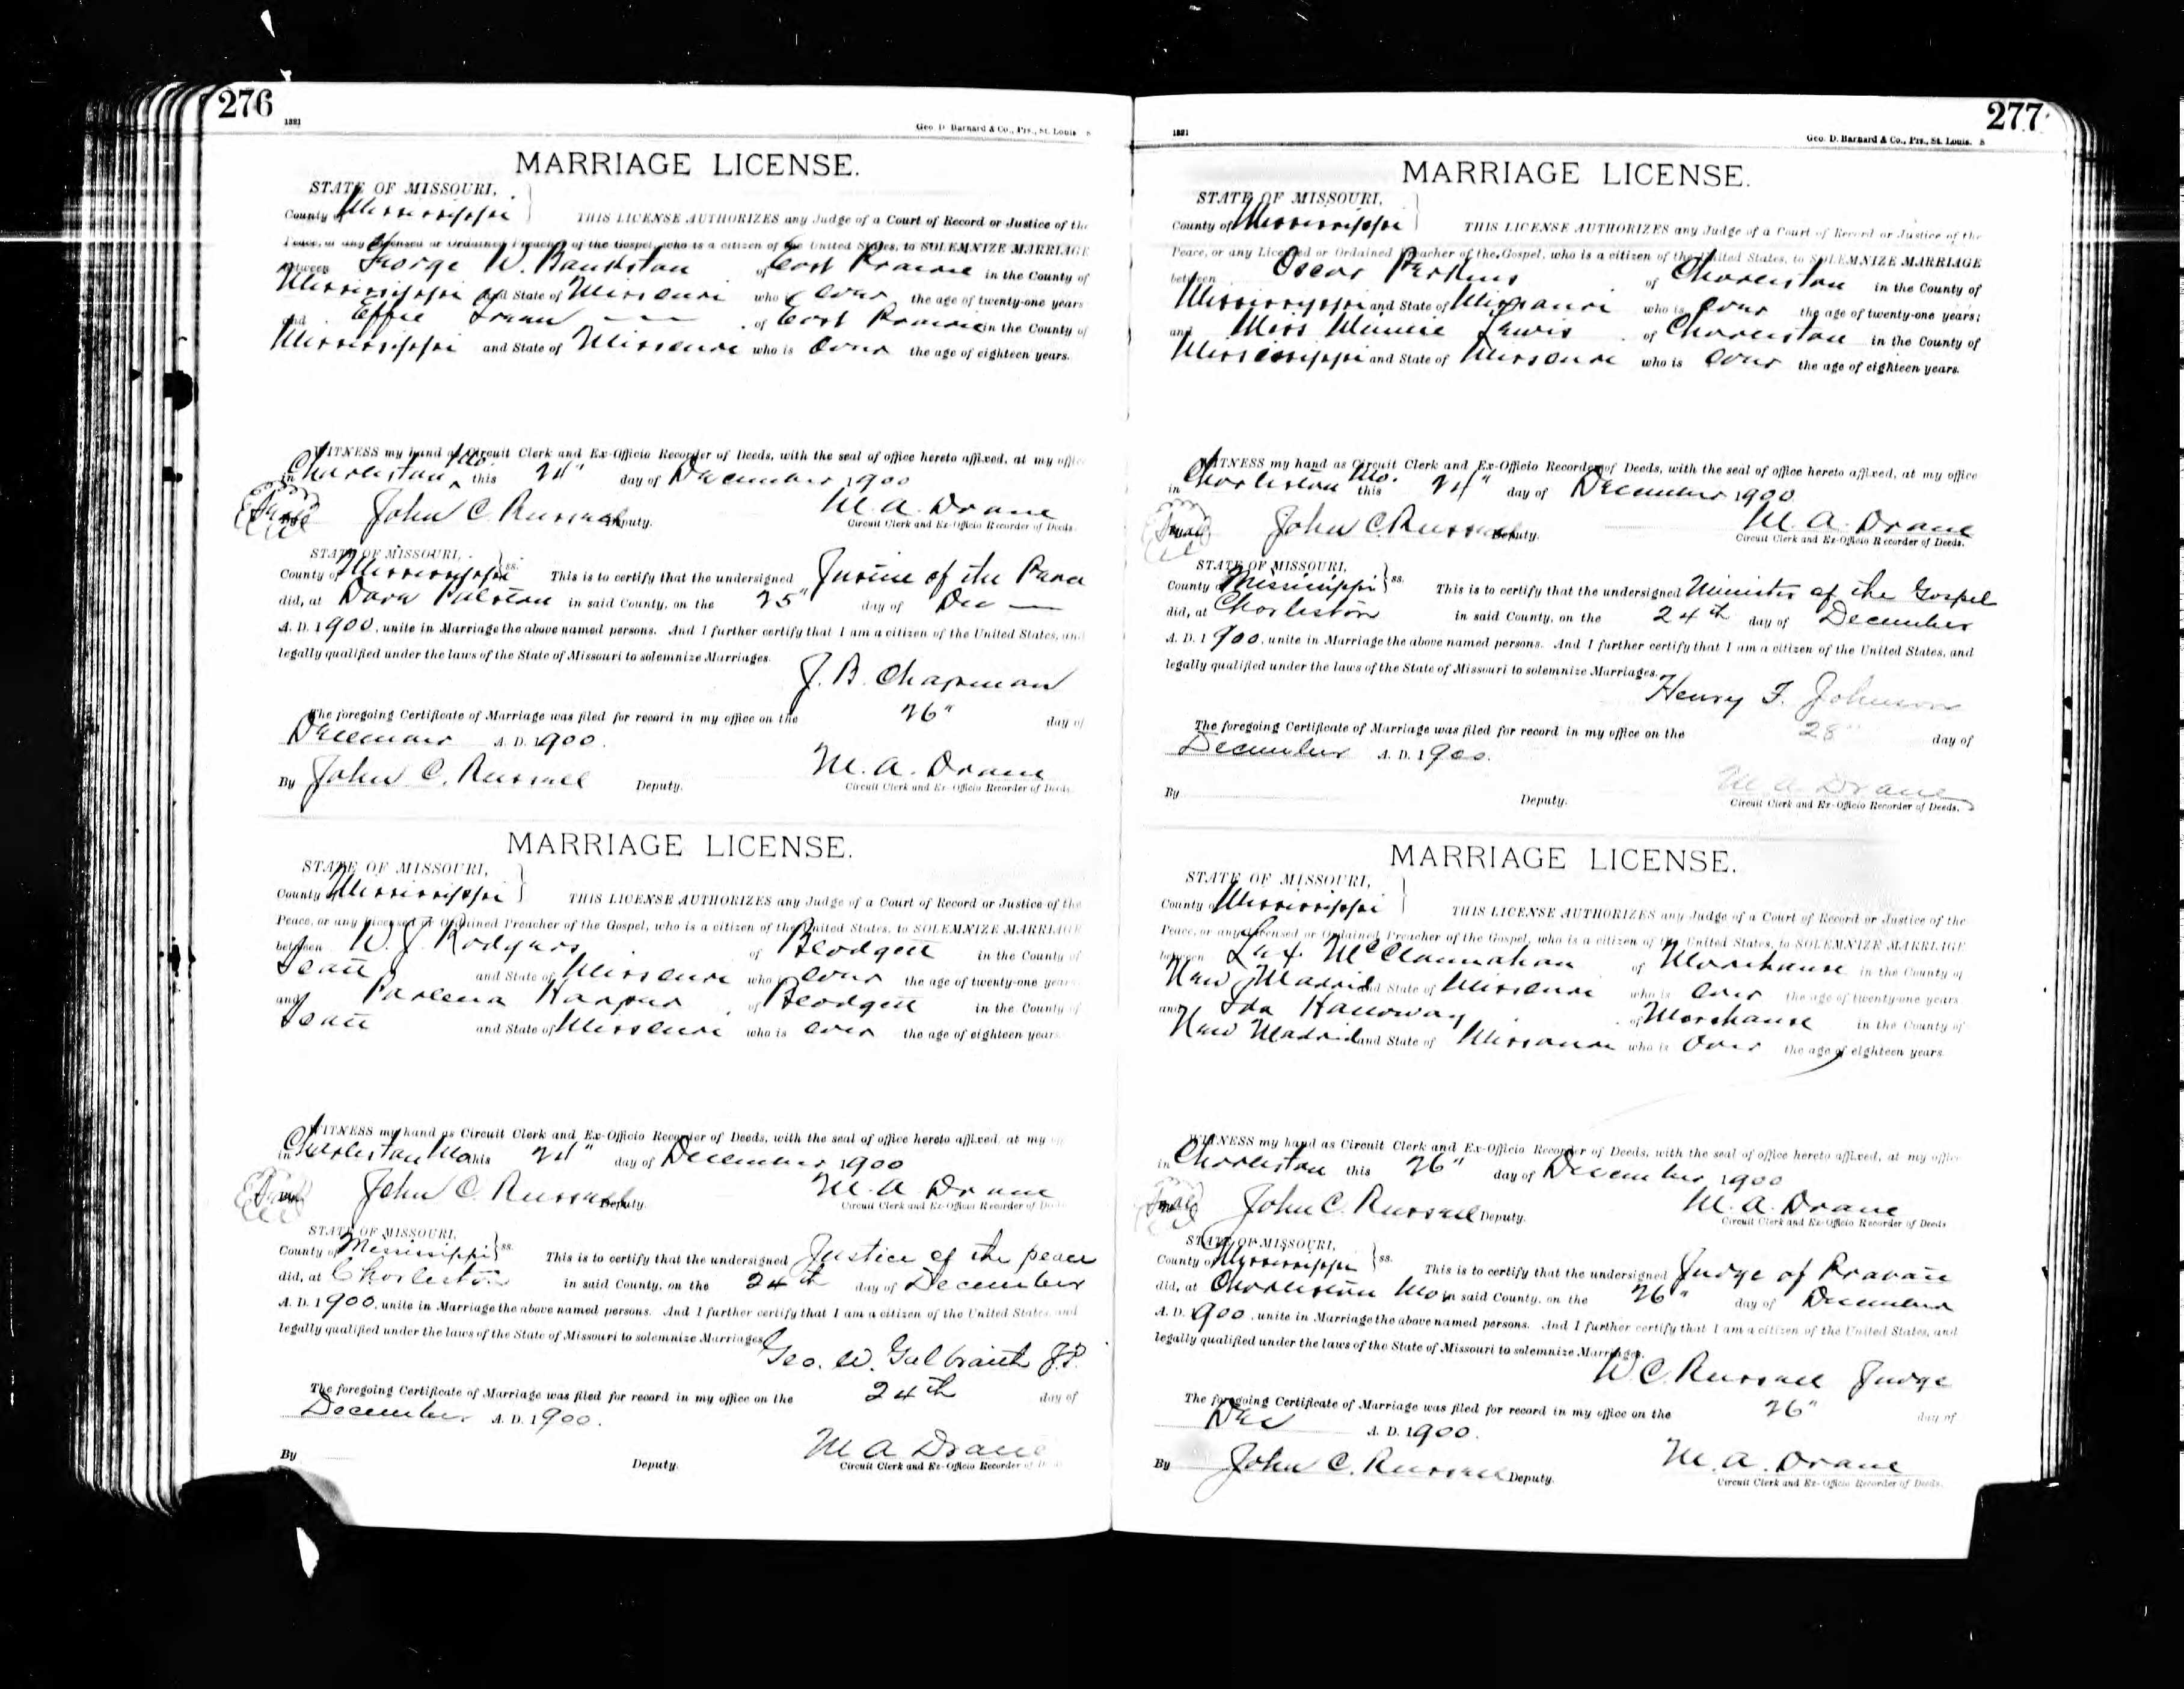 276
1381
Geo. D. Barnard & Co., Prs., St. Louis. 8
MARRIAGE LICENSE.
STATE OF MISSOURI,
County of Mississippi } THIS LICENSE AUTHORIZES any Judge of a Court of Record or Justice of the
Peace, or any Licensed or Ordained Preacher of the Gospel, who is a citizen of the United States, to SOLEMNIZE MARRIAGE
between George W. of East Prairie in the County of
Mississippi and State of Missouri who is over the age of twenty-one years
and Effie of East Prairie in the County of
Mississippi and State of Missouri who is over the age of eighteen years.
WITNESS my hand as Circuit Clerk and Ex-Officio Recorder of Deeds, with the seal of office hereto affixed, at my office
in Charleston Mo. this 24" day of December 1900
John C. Russell Deputy. M. A. Drane
Circuit Clerk and Ex-Officio Recorder of Deeds.
STATE OF MISSOURI,
County of Mississippi } ss. This is to certify that the undersigned Justice of the Peace
did, at in said County, on the 25" day of Dec
A. D. 1900, unite in Marriage the above named persons. And I further certify that I am a citizen of the United States, and
legally qualified under the laws of the State of Missouri to solemnize Marriages.
J. B. Chapman
The foregoing Certificate of Marriage was filed for record in my office on the 26" day of
December A. D. 1900.
By John C. Russell Deputy. M. A. Drane
Circuit Clerk and Ex-Officio Recorder of Deeds.
MARRIAGE LICENSE.
STATE OF MISSOURI,
County of Mississippi } THIS LICENSE AUTHORIZES any Judge of a Court of Record or Justice of the
Peace, or any Licensed or Ordained Preacher of the Gospel, who is a citizen of the United States, to SOLEMNIZE MARRIAGE
between W. J. Rodgers of Blodgett in the County of
Scott and State of Missouri who is over the age of twenty-one years
and Parlena Harper of Blodgett in the County of
Scott and State of Missouri who is over the age of eighteen years
WITNESS my hand as Circuit Clerk and Ex-Officio Recorder of Deeds, with the seal of office hereto affixed, at my
in Charleston Mo this 24" day of December 1900
John C. Russell Deputy. M. A. Drane
Circuit Clerk and Ex-Officio Recorder of Deeds
STATE OF MISSOURI,
County of Mississippi } ss. This is to certify that the undersigned Justice of the peace
did, at Charleston in said County, on the 24th day of December
A. D. 1900, unite in Marriage the above named persons. And I further certify that I am a citizen of the United States, and
legally qualified under the laws of the State of Missouri to solemnize Marriages
Geo. W. Galbraith J.P.
The foregoing Certificate of Marriage was filed for record in my office on the 24th day of
December A. D. 1900.
By Deputy. M A Drane
Circuit Clerk and Ex-Officio Recorder of Deeds
277
1381
Geo. D. Barnard & Co., Prs., St. Louis. 8
MARRIAGE LICENSE.
STATE OF MISSOURI,
County of Mississippi } THIS LICENSE AUTHORIZES any Judge of a Court of Record or Justice of the
Peace, or any Licensed or Ordained Preacher of the Gospel, who is a citizen of the United States, to SOLEMNIZE MARRIAGE
between Oscar Perkins of Charleston in the County of
Mississippi and State of Missouri who is over the age of twenty-one years;
and Miss Lewis of Charleston in the County of
Mississippi and State of Missouri who is over the age of eighteen years.
WITNESS my hand as Circuit Clerk and Ex-Officio Recorder of Deeds, with the seal of office hereto affixed, at my office
in Charleston Mo. this 24" day of December 1900
John C. Russell Deputy. M. A. Drane
Circuit Clerk and Ex-Officio Recorder of Deeds.
STATE OF MISSOURI,
County of Mississippi } ss. This is to certify that the undersigned Minister of the Gospel
did, at Charleston in said County, on the 24th day of December
A. D. 1900, unite in Marriage the above named persons. And I further certify that I am a citizen of the United States, and
legally qualified under the laws of the State of Missouri to solemnize Marriages.
Henry F. Johnson
The foregoing Certificate of Marriage was filed for record in my office on the 28" day of
December A. D. 1900.
By Deputy. M A Drane
Circuit Clerk and Ex-Officio Recorder of Deeds.
MARRIAGE LICENSE.
STATE OF MISSOURI,
County of Mississippi } THIS LICENSE AUTHORIZES any Judge of a Court of Record or Justice of the
Peace, or any Licensed or Ordained Preacher of the Gospel, who is a citizen of the United States, to SOLEMNIZE MARRIAGE
between McClannahan of Morehouse in the County of
New Madrid and State of Missouri who is over the age of twenty-one years
and Ida of Morehouse in the County of
New Madrid and State of Missouri who is over the age of eighteen years.
WITNESS my hand as Circuit Clerk and Ex-Officio Recorder of Deeds, with the seal of office hereto affixed, at my office
in Charleston this 26" day of December 1900
John C. Russell Deputy. M. A. Drane
Circuit Clerk and Ex-Officio Recorder of Deeds
STATE OF MISSOURI,
County of Mississippi } ss. This is to certify that the undersigned Judge of Probate
did, at Charleston Mo in said County, on the 26" day of December
A. D. 1900, unite in Marriage the above named persons. And I further certify that I am a citizen of the United States, and
legally qualified under the laws of the State of Missouri to solemnize Marriages.
W C. Russell Judge
The foregoing Certificate of Marriage was filed for record in my office on the 26" day of
Dec A. D. 1900.
By John C. Russell Deputy. M. A. Drane
Circuit Clerk and Ex-Officio Recorder of Deeds.